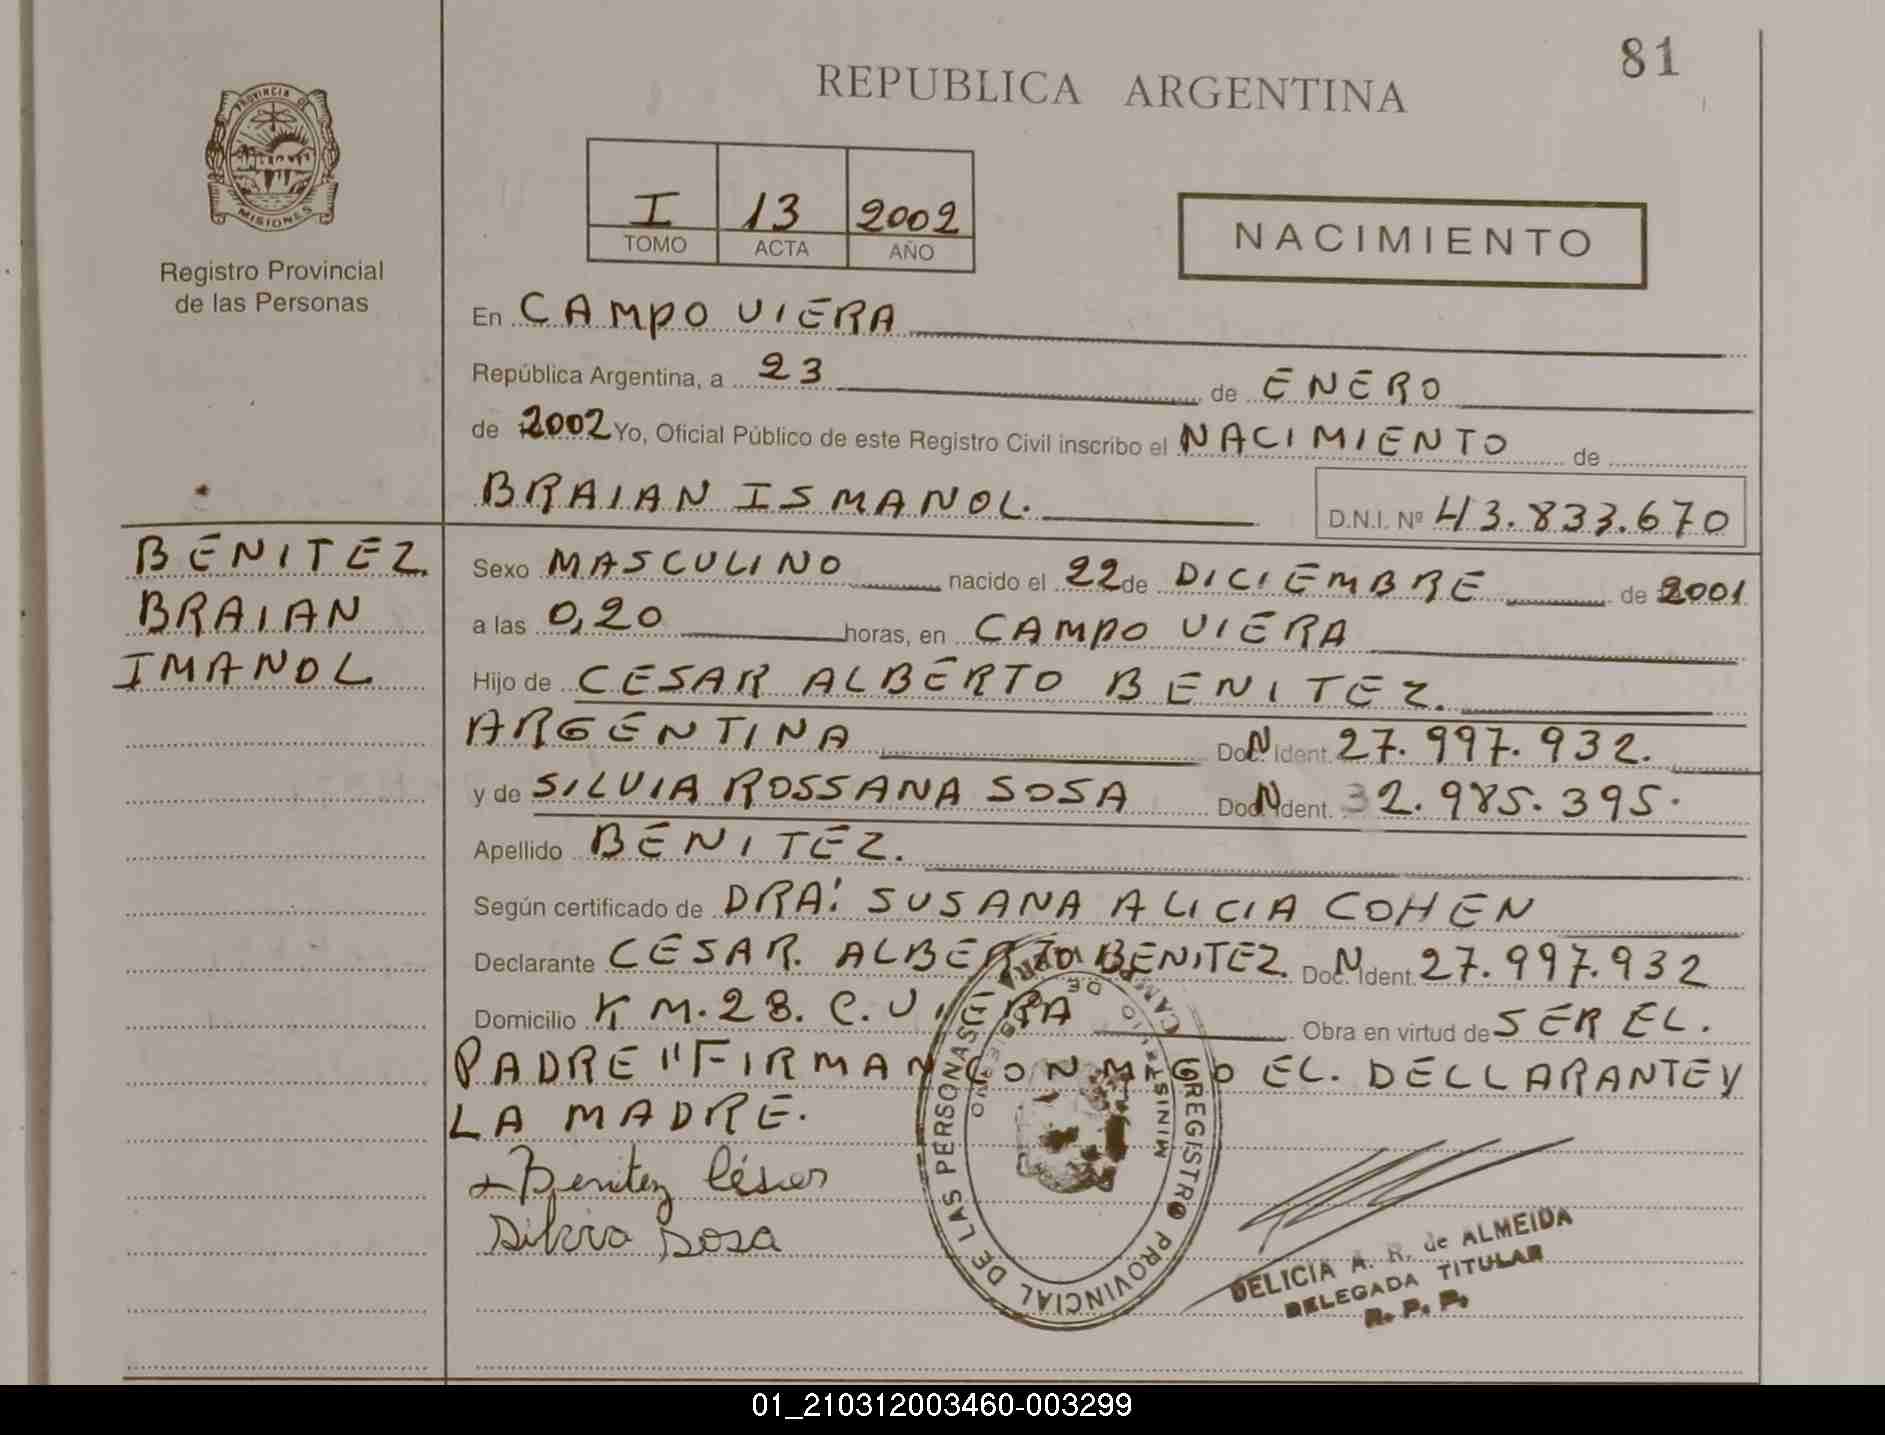 81
REPUBLICA ARGENTINA
PROVINCIA DE
MISIONES
Registro Provincial
de las Personas
I 13 2002
TOMO ACTA AÑO
NACIMIENTO
En CAMPO VIERA
República Argentina, a 23 de ENERO
de 2002 Yo, Oficial Público de este Registro Civil inscribo el NACIMIENTO de
BRAIAN ISMANOL. D.N.I. Nº 43.833.670
BENITEZ.
BRAIAN
IMANOL
Sexo MASCULINO nacido el 22 de DICIEMBRE de 2001
a las 0,20 horas, en CAMPO VIERA
Hijo de CESAR ALBERTO BENITEZ.
ARGENTINA Doc. N Ident. 27.997.932.
y de SILVIA ROSSANA SOSA Doc. N Ident. 32.985.395.
Apellido BENITEZ.
Según certificado de DRA: SUSANA ALICIA COHEN
Declarante CESAR. ALBERTO BENITEZ. Doc. N Ident. 27.997.932
Domicilio KM.28. C. VIERA Obra en virtud de SER EL.
PADRE "FIRMAN CONMIGO EL. DELLARANTE Y
LA MADRE.
Benitez César
Silvia Sosa
REGISTRO PROVINCIAL DE LAS PERSONAS
MINISTERIO DE GOBIERNO
CAMPO VIERA
DELICIA A. R. de ALMEIDA
DELEGADA TITULAR
R. P. P.
01_210312003460-003299